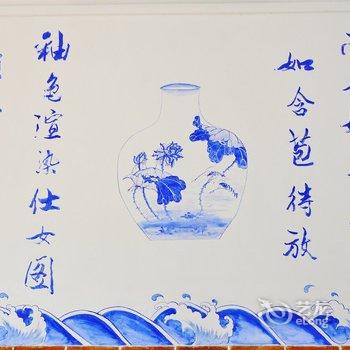 如含苞待放
釉色渲染仕女图
艺龙
eLong